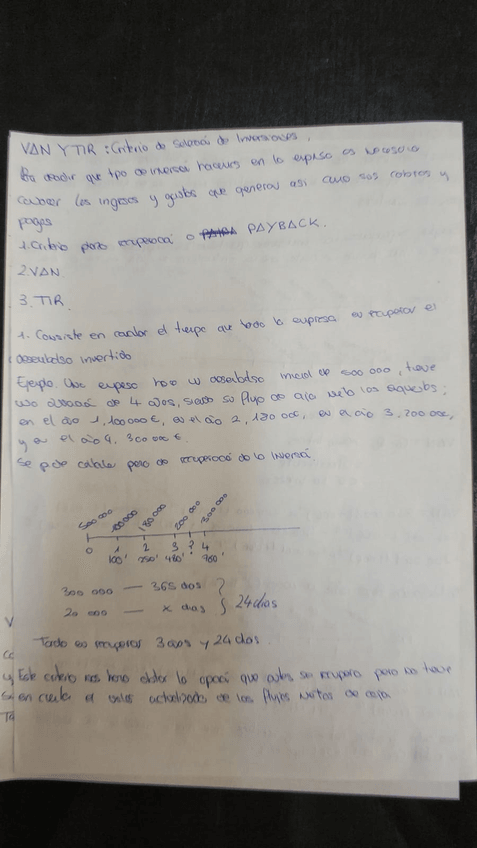 VAN Y TIR : Criterio de Selección de Inversiones.
Para decidir que tipo de inversión hacemos en la empresa es necesario
conocer los ingresos y gastos que generan así como sus cobros y
pagos
1. Criterio plazo recuperación o PAYBACK.
2. VAN
3. TIR.
1. Consiste en calcular el tiempo que tarda la empresa en recuperar el
desembolso invertido
Ejemplo. Una empresa hace un desembolso inicial de 500 000, tiene
una duración de 4 años, siendo su flujo de caja neto los siguientes;
en el año 1, 100000€, en el año 2, 180 000, en el año 3, 200 000,
y en el año 4, 300 000 €.
Se pide calcular de recuperación de la Inversión.
500 000 100000 180 000 200 000 300 000
0 1 2 3 ? 4
100' 480'
300 000 — 365 días
20 000 — x días } 24 días
Tarda en recuperar 3 años y 24 días.
Este criterio nos hará elegir la opción que antes se recupera pero no tiene
en cuenta el valor actualizado de los flujos netos de caja